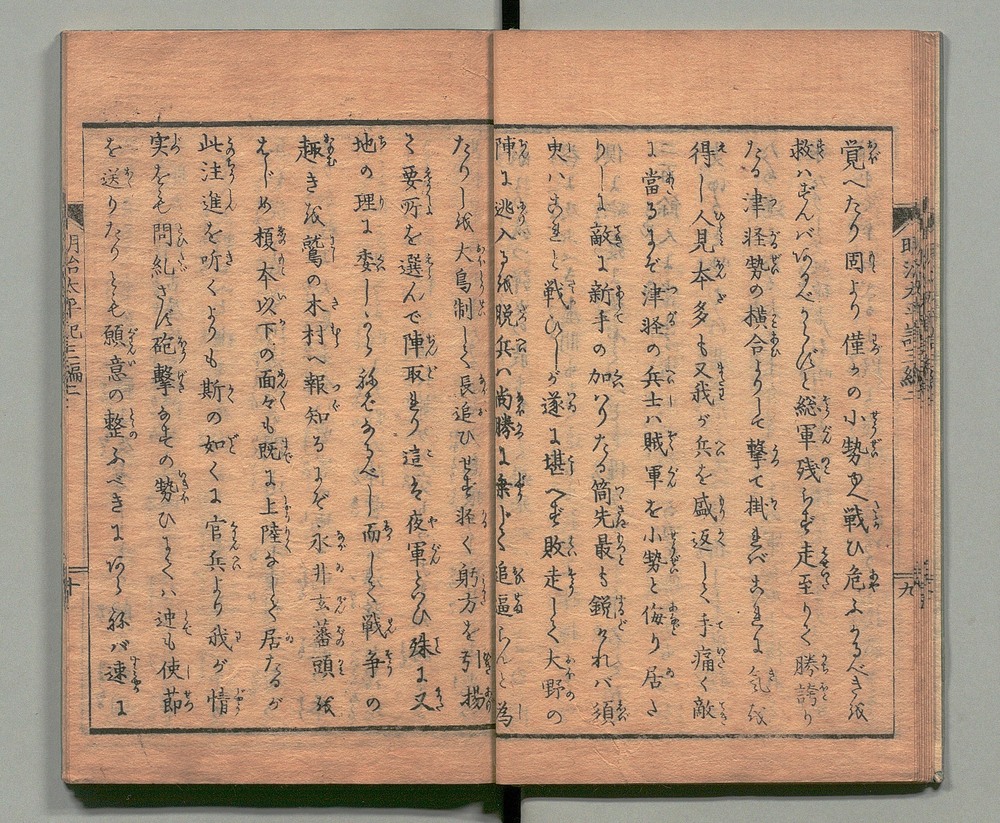 覚へたり固より僅かの小勢又戦ひ危ふかるべきを
救ハずんバあるべからずと総軍残らず走至りて勝誇り
たる津軽勢の横合よりして撃て掛れバこれに気を
得し人見本多も又我が兵を盛返して手痛く敵
に當るにぞ津軽の兵士ハ賊軍を小勢と侮り居た
りしに敵に新手の加ハりたる筒先最も鋭けれバ須
臾ハこれと戦ひしが遂に堪へず敗走して大野の
陣に逃入るを脱兵ハ尚勝に乗じて追逼らんと為
たりしを大鳥制して長追ひせず軽く躬方を引揚
て要所を選んで陣取れり這ハ夜軍といひ殊に又
地の理に委しからねバなるべし而して戦争の
趣きを鷲の木村へ報知るにぞ永井玄蕃頭を
はじめ榎本以下の面々も既に上陸なして居たるが
此注進を听くよりも斯の如くに官兵より我が情
実をも問糺さず砲撃なすの勢ひにてハ迚も使節
を送りたりとも願意の整ふべきにあらねバ速に
明治太平記三編二
九
明治太平記三編二
十